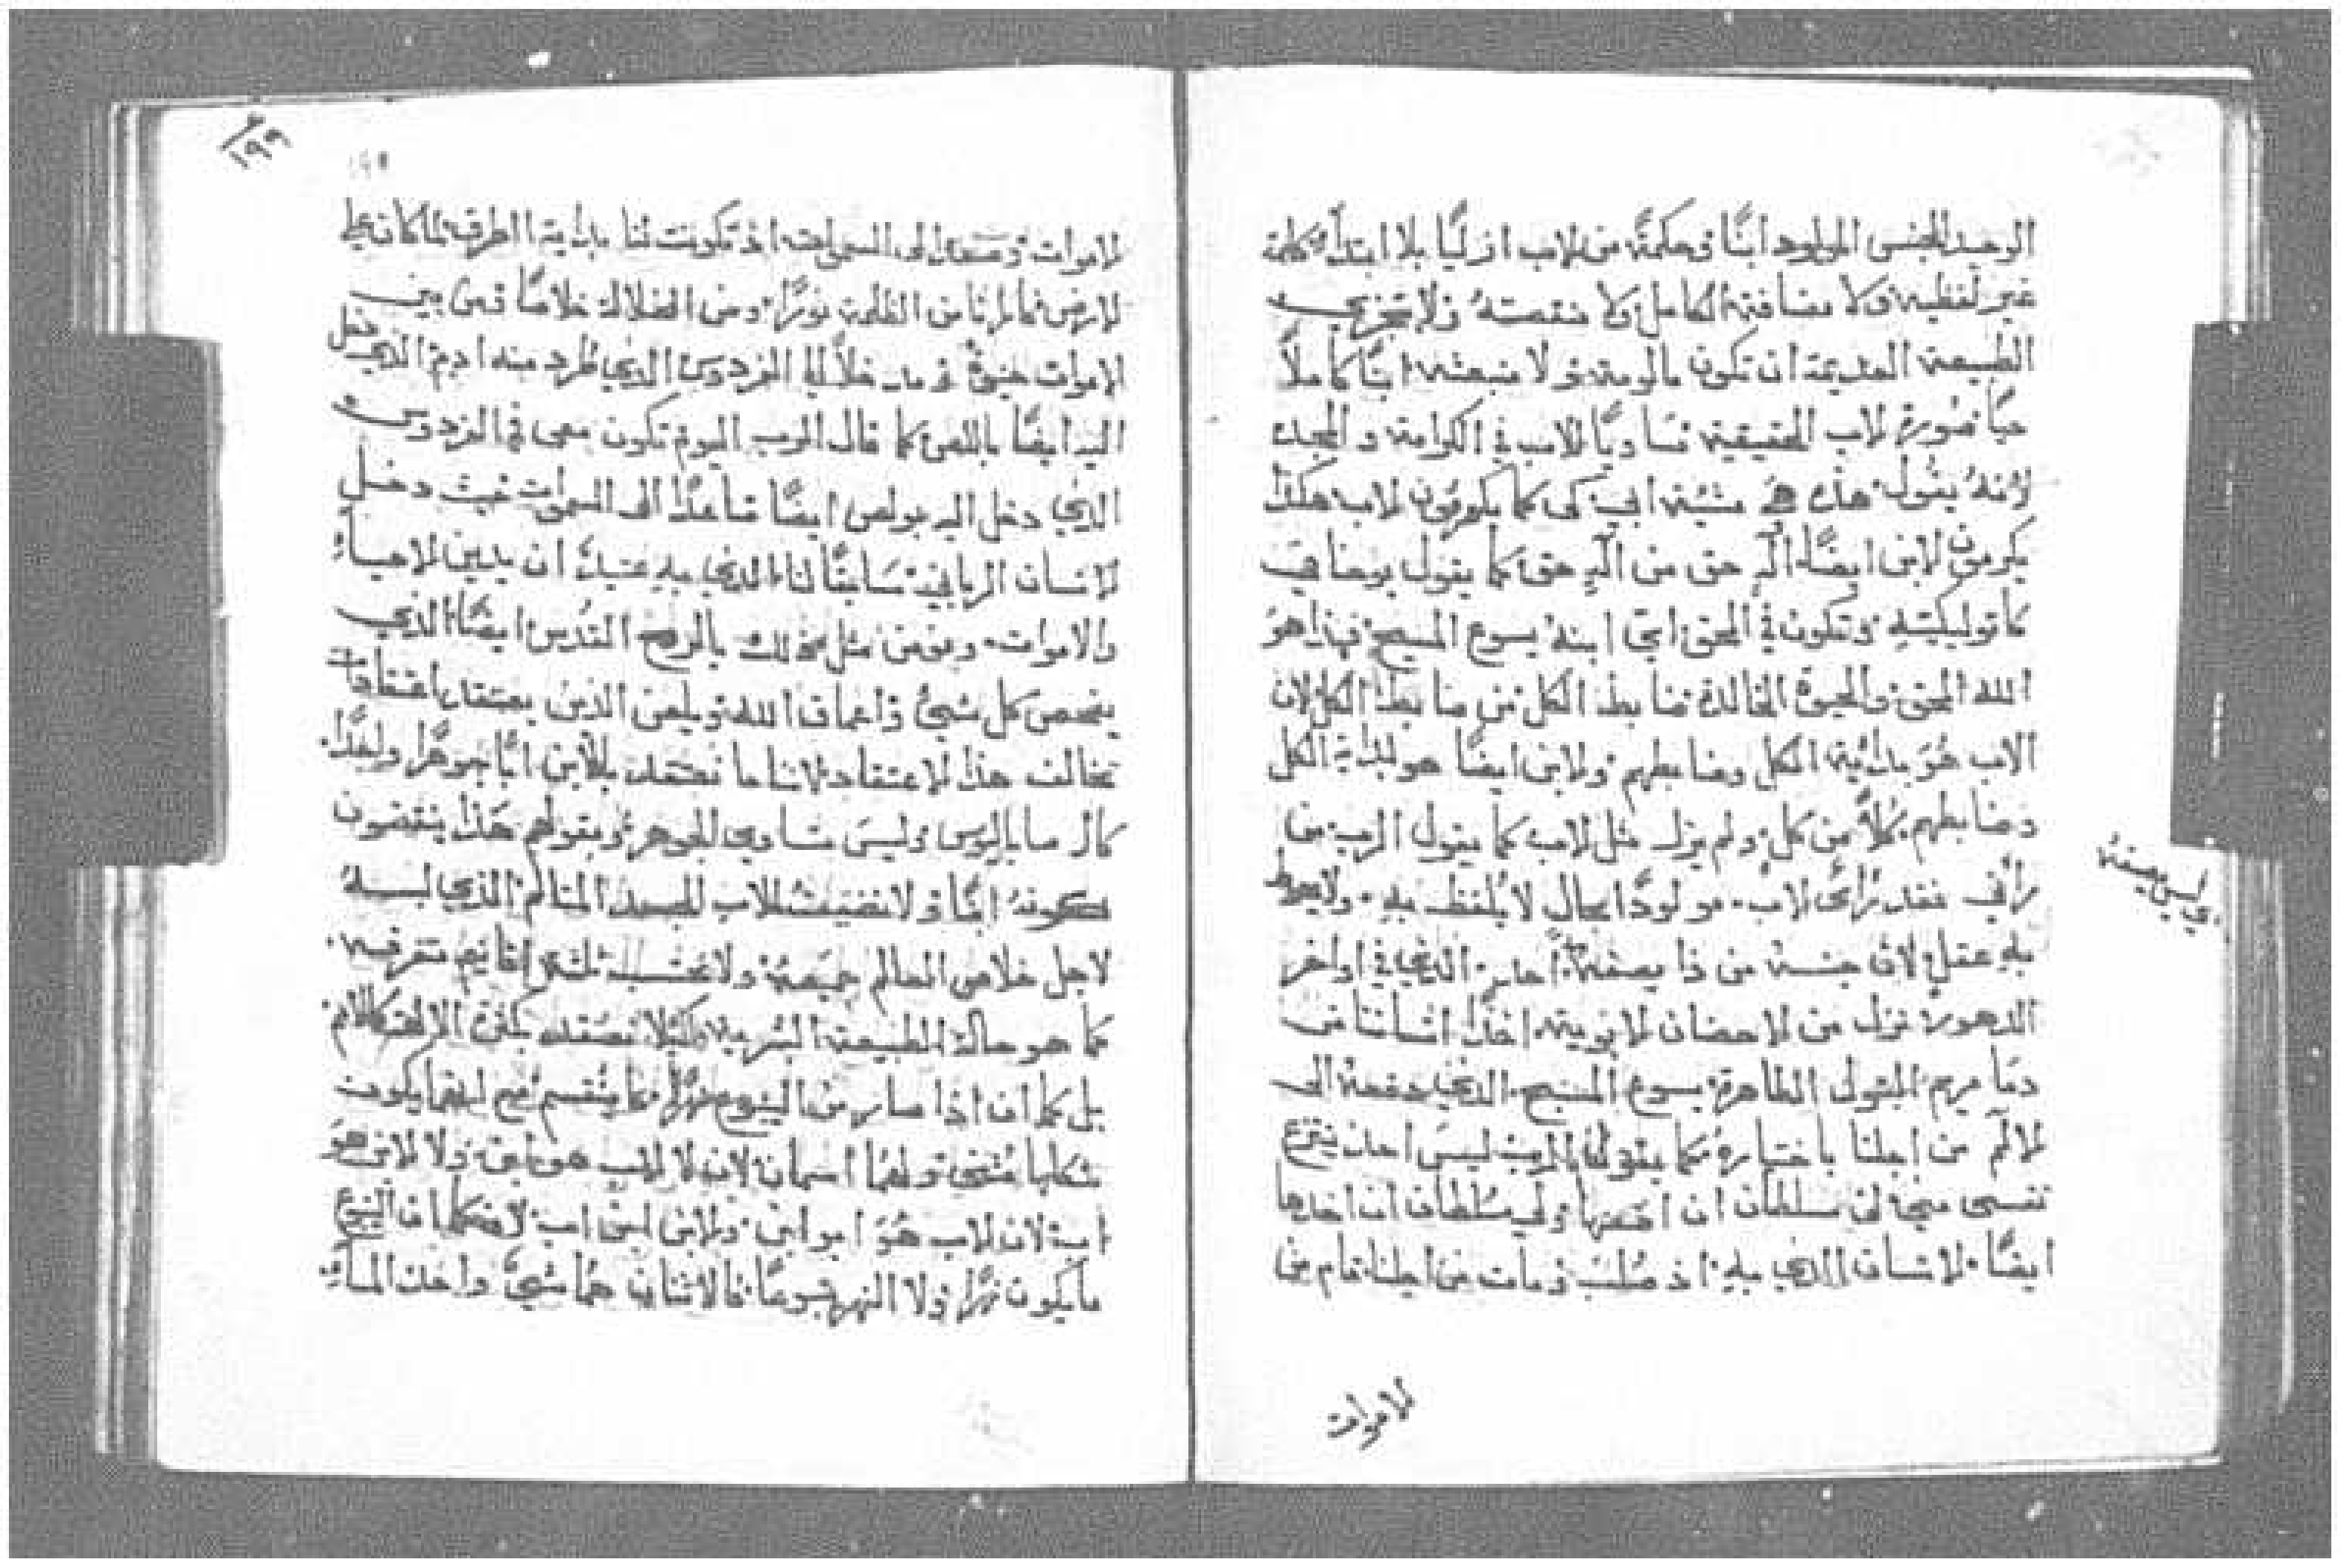 الوحيد الجنس المولود ابنًا وحكمةً من الاب ازليًا بلا ابتداء كلمة
غير لفظيه ولا مضافة الكامل ولا منقصته ولا تجزي
الطبيعة العديمة ان تكون مالومة ولا منبعثه ابنًا كاملاً
حيًا صورة الاب الحقيقية مساويًا للاب في الكرامة والمجد
لانهُ يقول هذه هي مشيئة ابي كي كما يكرمون الاب هكذا
يكرمون الابن ايضًا اله حق من اله حق كما يقول يوحنا في
كاتوليكيته ونكون في الحق اي ابنه يسوع المسيح فهذا هو
الله الحق والحيوة الخالدة ضابط الكل من ضابط الكل لان
الاب هُوَ بداية الكل وضابطهم والابن ايضًا هو بداية الكل
وضابطهم كلاً من كل ولم يزل مثل الاب كما يقول الرب من
رأني فقد رأى الاب مولودًا بحال لا يلفظ به ولا يحيط
به عقل لان جنسه من ذا يصفهُ احد الذي في اواخر
الدهور نزل من الاحضان الابوية اخذًا انساننا من
دما مريم البتول الطاهرة يسوع المسيح الذي دفعهُ الى
الالم من اجلنا باختياره كما يقول الرب ليس احد ينتزع
نفسي مني لي سلطان ان اضعها ولي سلطان ان اخذها
ايضًا الانسان الذي به اذ صُلب ومات من اجلنا قام من
الاموات
١٩٩
الاموات وصعد الى السموات اذ تكونت لنا بداية الطرق لما كان على
الارض فانارنا من الظلمة نورًا ومن الضلالة خلاصًا ومن بين
الاموات حيوةً ومدخلاً الى الفردوس الذي طرد منه ادم الذي دخل
اليه ايضًا باللص كما قال الرب اليوم تكون معي في الفردوس
الذي دخل اليه بولص ايضًا صاعدًا الى السموات حيث دخل
الانسان الرباني سابقًا لنا الذي به عتيدًا ان يدين الاحياء
والاموات ونومن مثل ذلك بالروح القدس ايضًا الذي
يفحص كل شيء واعماق الله ويلعن الذين يعتقد اعتقادات
تخالف هذا الاعتقاد لاننا ما نعتقد بالابن ابًا جوهرًا واحدًا
كال صاباليوس وليس متساوي الجوهر وبقولهم هذا ينقضون
كونهُ ابنًا ولا نضيف للاب الجسد المتالم الذي لبسهُ
لاجل خلاص العالم جميعهُ ولا نحتسب ثلثة اقانيم متفرقه
كما هو حالة الطبيعة البشرية لكيلا نعتقد بكثرة الالهة كالامم
بل كما ان اذا صار من الينبوع نهرًا فما ينقسم مع انهما يكون
شكلها مثنى ولهما اسمان لان لا الاب هو ابن ولا الابن هو
اب لان الاب هُوَ ابو ابن والابن ابن اب لان كما ان الينبوع
ما يكون نهرًا ولا النهر ينبوعًا فالاثنان هما شيءٌ واحد الماء